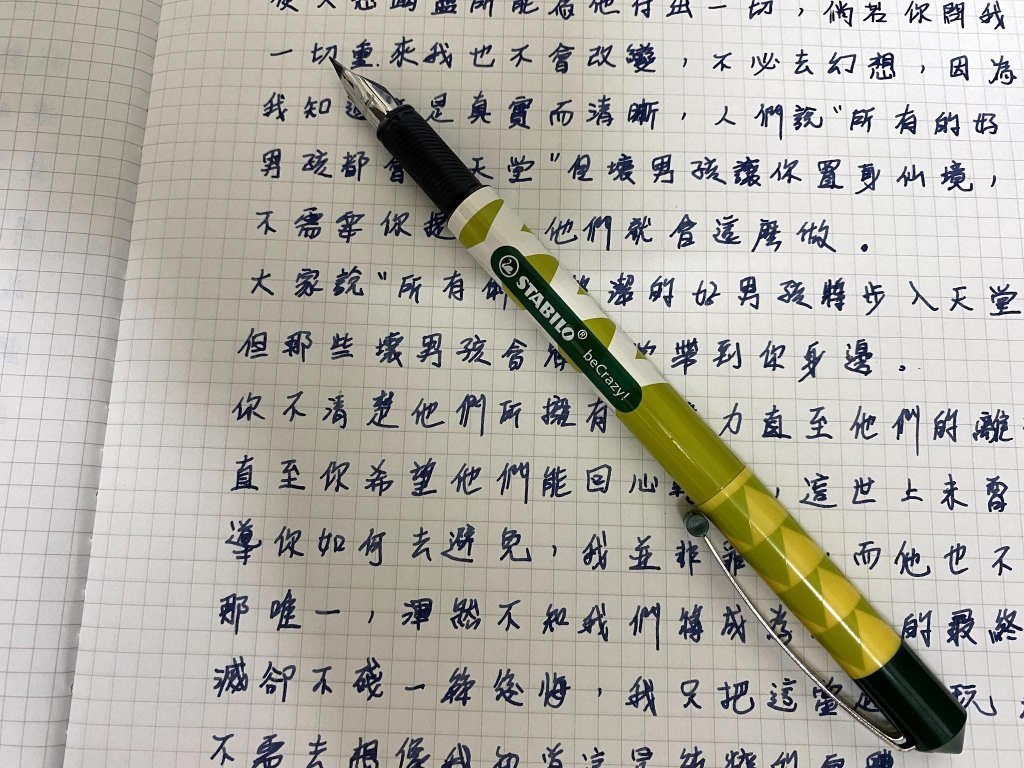 所能為他付出一切，倘若你問我
一切重來我也不會改變，不必去幻想，因為
我知道 是真實而清晰，人們說"所有的好
男孩都會 天堂"但壞男孩讓你置身仙境，
不需要你提 他們就會這麼做。
大家說"所有 潔的好男孩將步入天堂
但那些壞男孩會 帶到你身邊。
你不清楚他們所擁有 力直至他們的離
直至你希望他們能回心 ，這世上未曾
導你如何去避免，我並非罪 ，而他也不
那唯一，渾然不知我們將成為 的最終
滅卻不殘一絲悔，我只把這當 玩
不需去想像我知道這是
STABILO®
beCrazy!